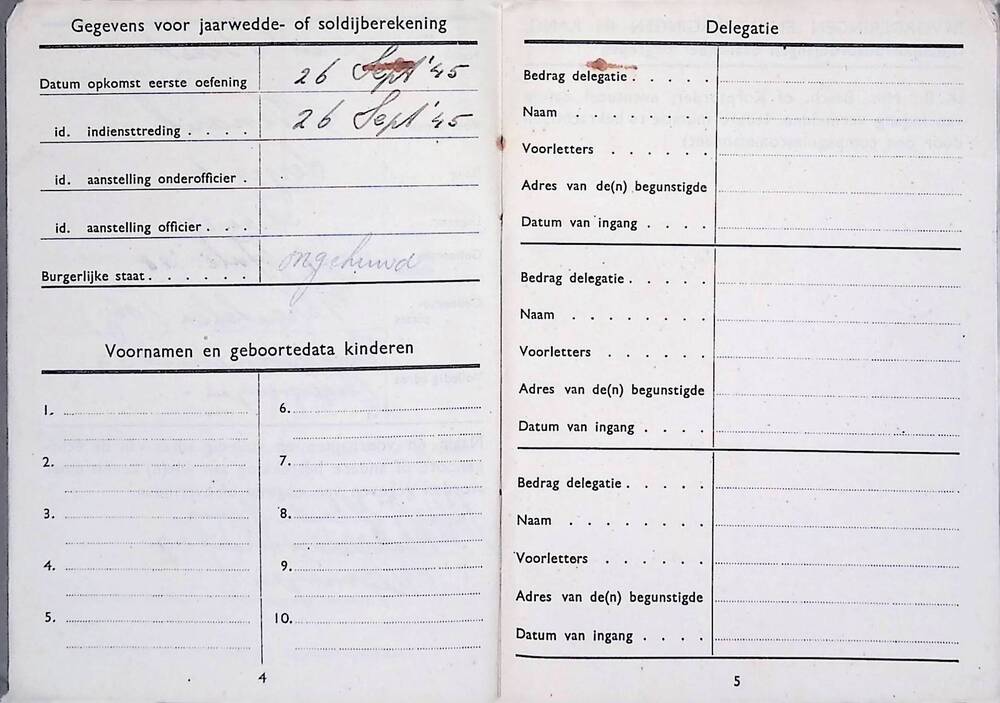 Gegevens voor jaarwedde- of soldijberekening
Datum opkomst eerste oefening 26 Sept '45
id. indiensttreding . . . . 26 Sept '45
id. aanstelling onderofficier .
id. aanstelling officier . . .
Burgerlijke staat . . . . . . ongehuwd
Voornamen en geboortedata kinderen
1.
2.
3.
4.
5.
6.
7.
8.
9.
10.
4
Delegatie
Bedrag delegatie . . . . .
Naam
Voorletters . . . . . .
Adres van de(n) begunstigde
Datum van ingang . . . .
Bedrag delegatie . . . . .
Naam . . . . . . . .
Voorletters . . . . . .
Adres van de(n) begunstigde
Datum van ingang . . . .
Bedrag delegatie . . . . .
Naam . . . . . . . .
Voorletters . . . . . .
Adres van de(n) begunstigde
Datum van ingang . . . .
5